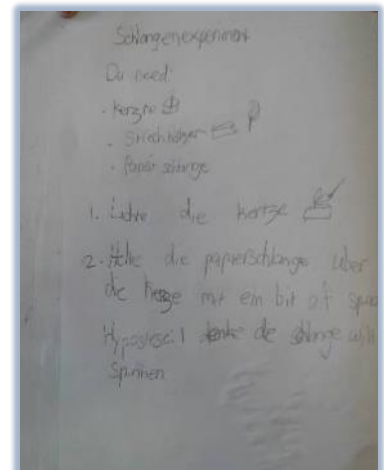 Schlangenexperiment
Du need:
• kerzte
• Streichholzer
• Papier schlange
1. Lichte die kertze
2. Holte die papierschlange uber
die kerze mit ein bit of space
Hypostese: I denke de schlange will
Spinnen